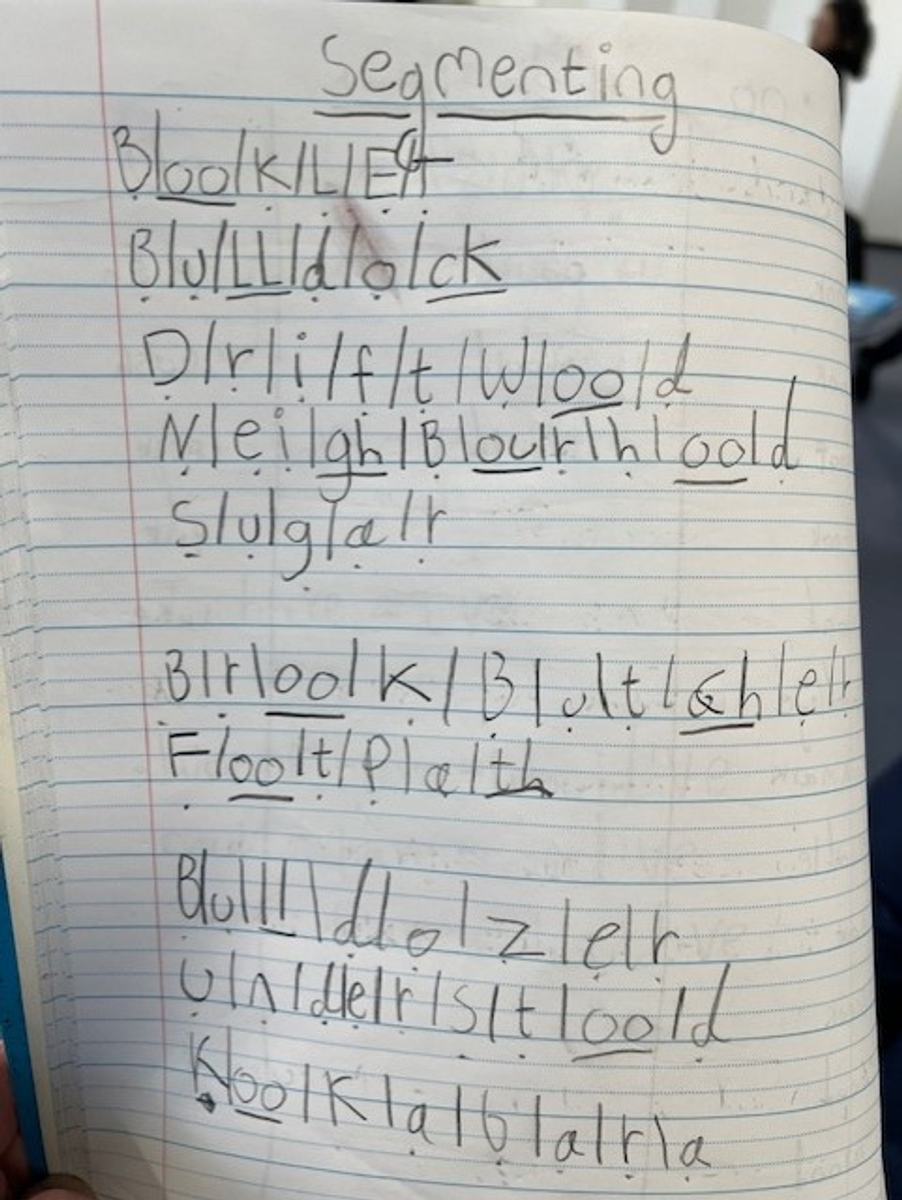 Segmenting
B/oo/k/L/E/t
B/u/LL/d/o/ck
D/r/i/f/t/W/oo/d
N/ei/gh/B/ou/r/h/oo/d
S/u/g/a/r
B/r/oo/k/B/u/t/ch/e/r
F/oo/t/P/a/th
B/u/ll/d/o/z/e/r
U/n/d/e/r/s/t/oo/d
K/oo/K/a/b/a/r/a